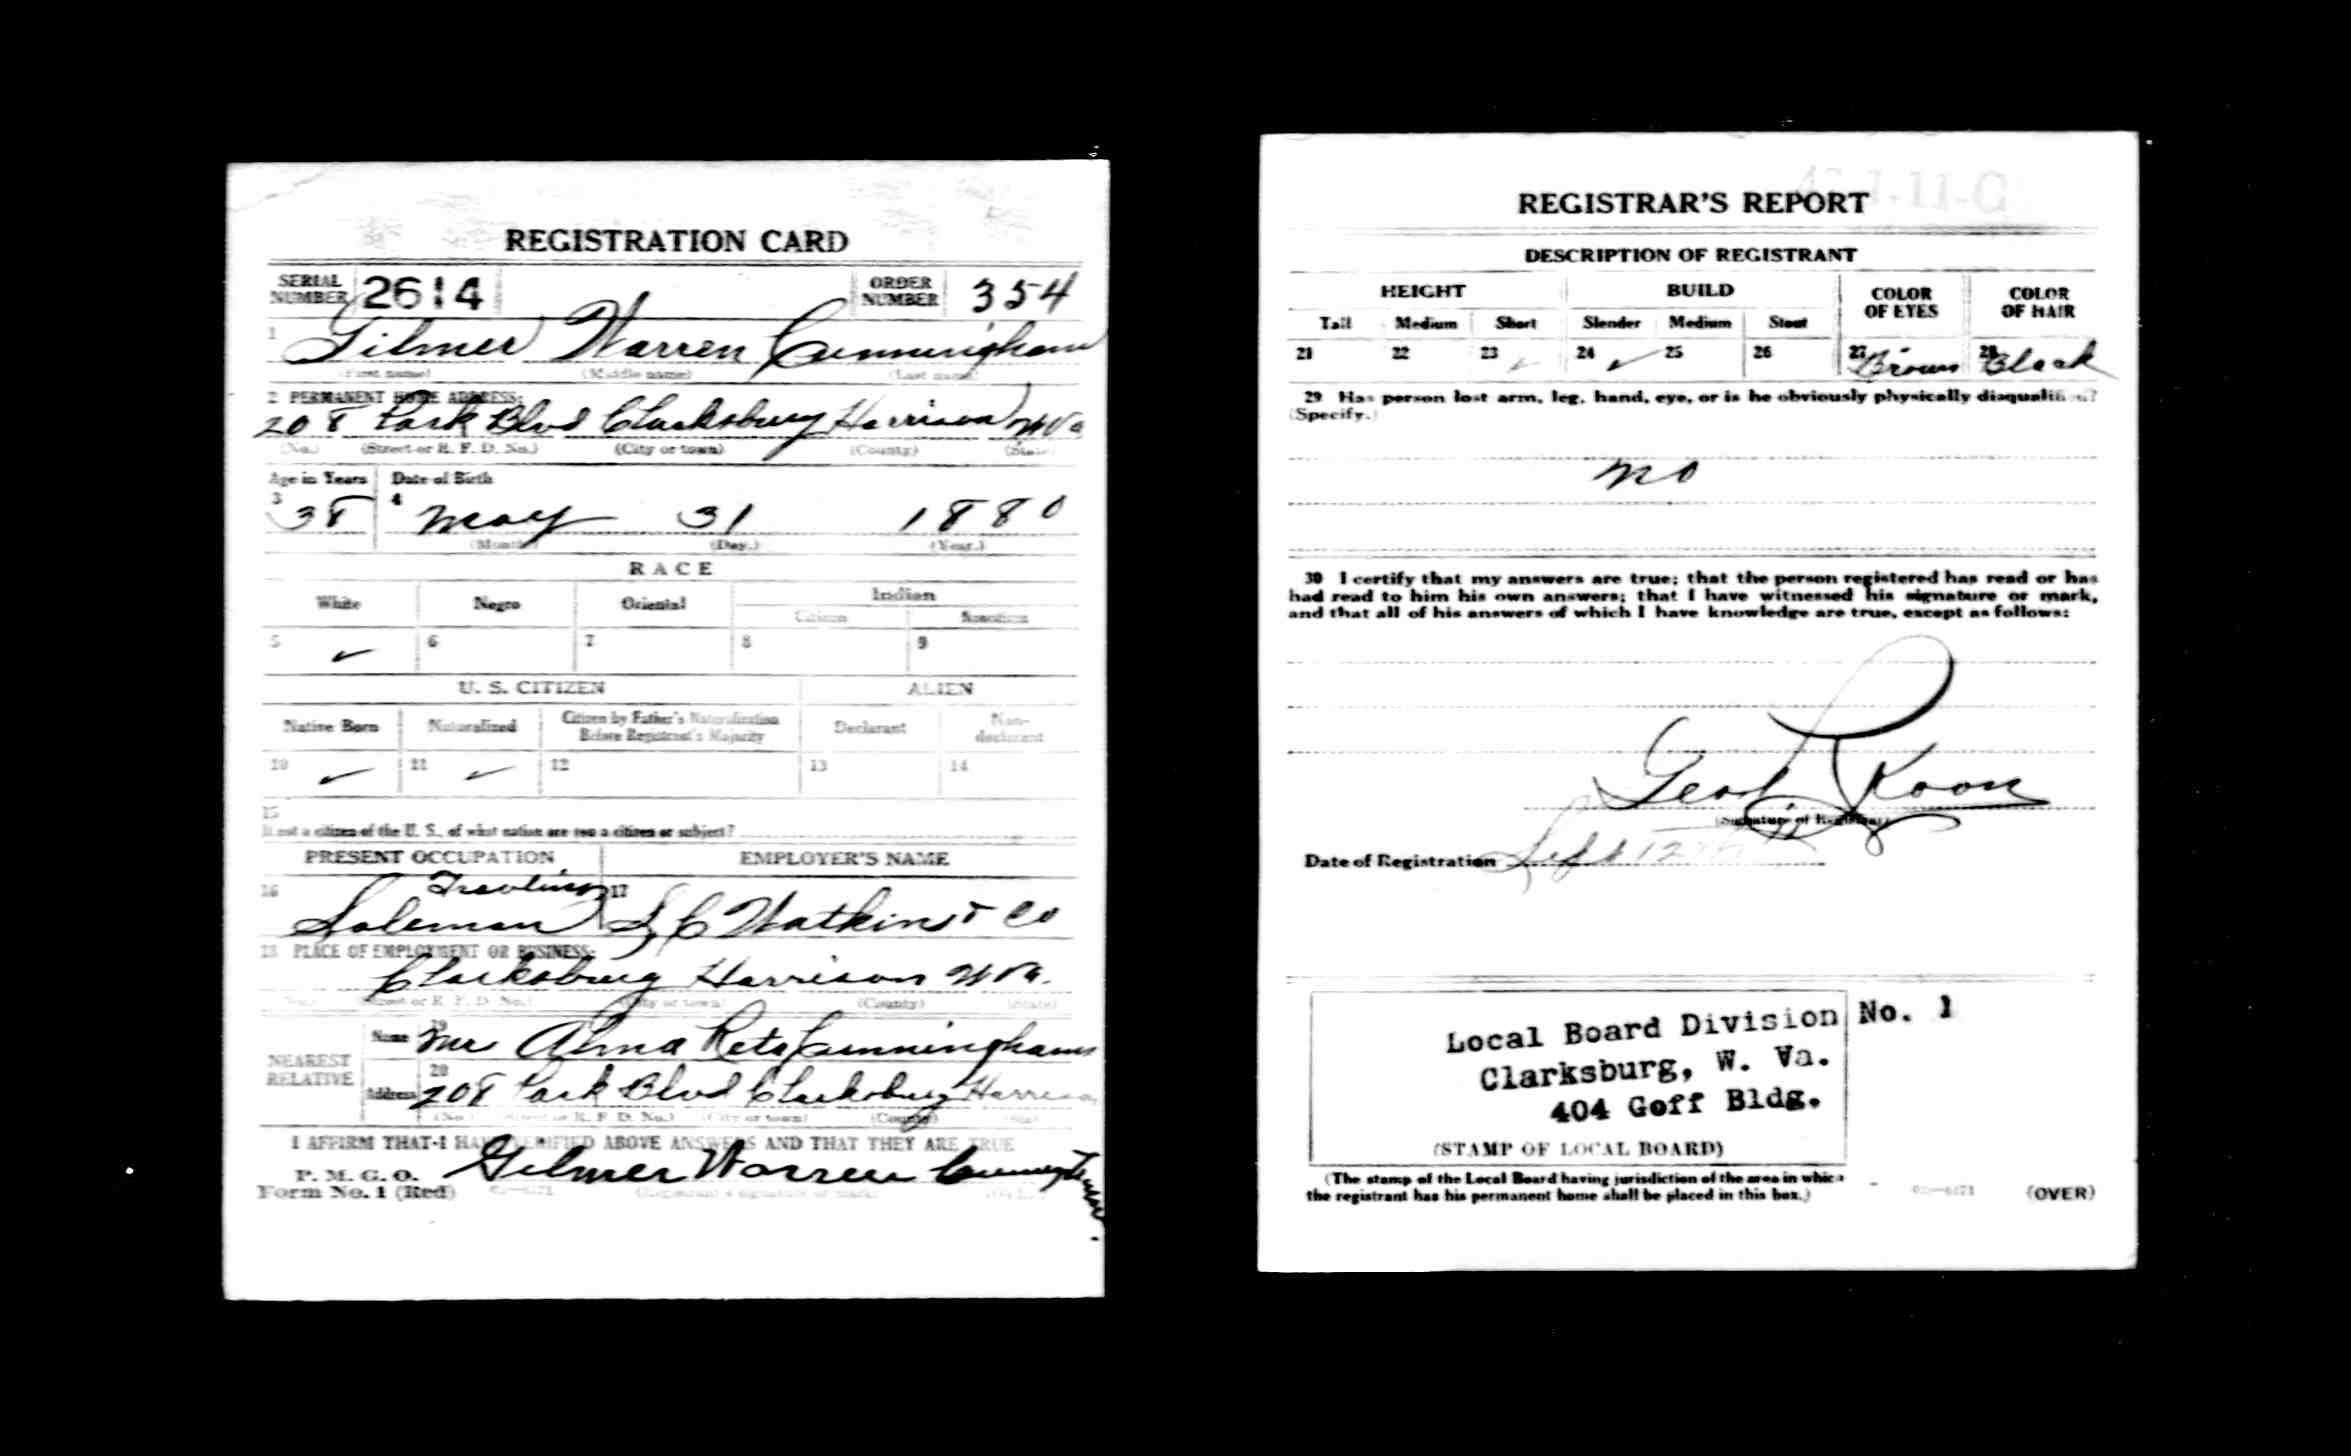 REGISTRATION CARD
SERIAL NUMBER 2614 ORDER NUMBER 354
1 Gilmer Warren Cunningham
(First name) (Middle name) (Last name)
2 PERMANENT HOME ADDRESS:
208 Park Blvd Clarksburg Harrison W Va
(No.) (Street or R. F. D. No.) (City or town) (County) (State)
Age in Years Date of Birth
3 38 4 May 31 1880
(Month) (Day.) (Year.)
RACE
White Negro Oriental Indian
Citizen Noncitizen
5 ✓ 6 7 8 9
U. S. CITIZEN ALIEN
Native Born Naturalized Citizen by Father's Naturalization Before Registrant's Majority Declarant Non-declarant
10 ✓ 11 ✓ 12 13 14
15
If not a citizen of the U. S., of what nation are you a citizen or subject?
PRESENT OCCUPATION EMPLOYER'S NAME
16 Travling 17
Saleman Watkins Co
18 PLACE OF EMPLOYMENT OR BUSINESS:
Clarksburg Harrison W Va.
(No.) (Street or R. F. D. No.) (City or town) (County) (State)
NEAREST RELATIVE
Name 19 Mrs Alma Cunningham
Address 20 208 Park Blvd Clarksburg Harrison
(No.) (Street or R. F. D. No.) (City or town) (County) (State)
I AFFIRM THAT I HAVE VERIFIED ABOVE ANSWERS AND THAT THEY ARE TRUE
P. M. G. O.
Form No. 1 (Red) Gilmer Warren Cunningham
REGISTRAR'S REPORT
DESCRIPTION OF REGISTRANT
HEIGHT BUILD COLOR OF EYES COLOR OF HAIR
Tall Medium Short Slender Medium Stout
21 22 23 ✓ 24 ✓ 25 26 27 Brown 28 Black
29 Has person lost arm, leg, hand, eye, or is he obviously physically disqualified?
(Specify.)
no
30 I certify that my answers are true; that the person registered has read or has
had read to him his own answers; that I have witnessed his signature or mark,
and that all of his answers of which I have knowledge are true, except as follows:
Koon
(Signature of Registrar)
Date of Registration Sept 12
Local Board Division No. 1
Clarksburg, W. Va.
404 Goff Bldg.
(STAMP OF LOCAL BOARD)
(The stamp of the Local Board having jurisdiction of the area in which
the registrant has his permanent home shall be placed in this box.)
(OVER)